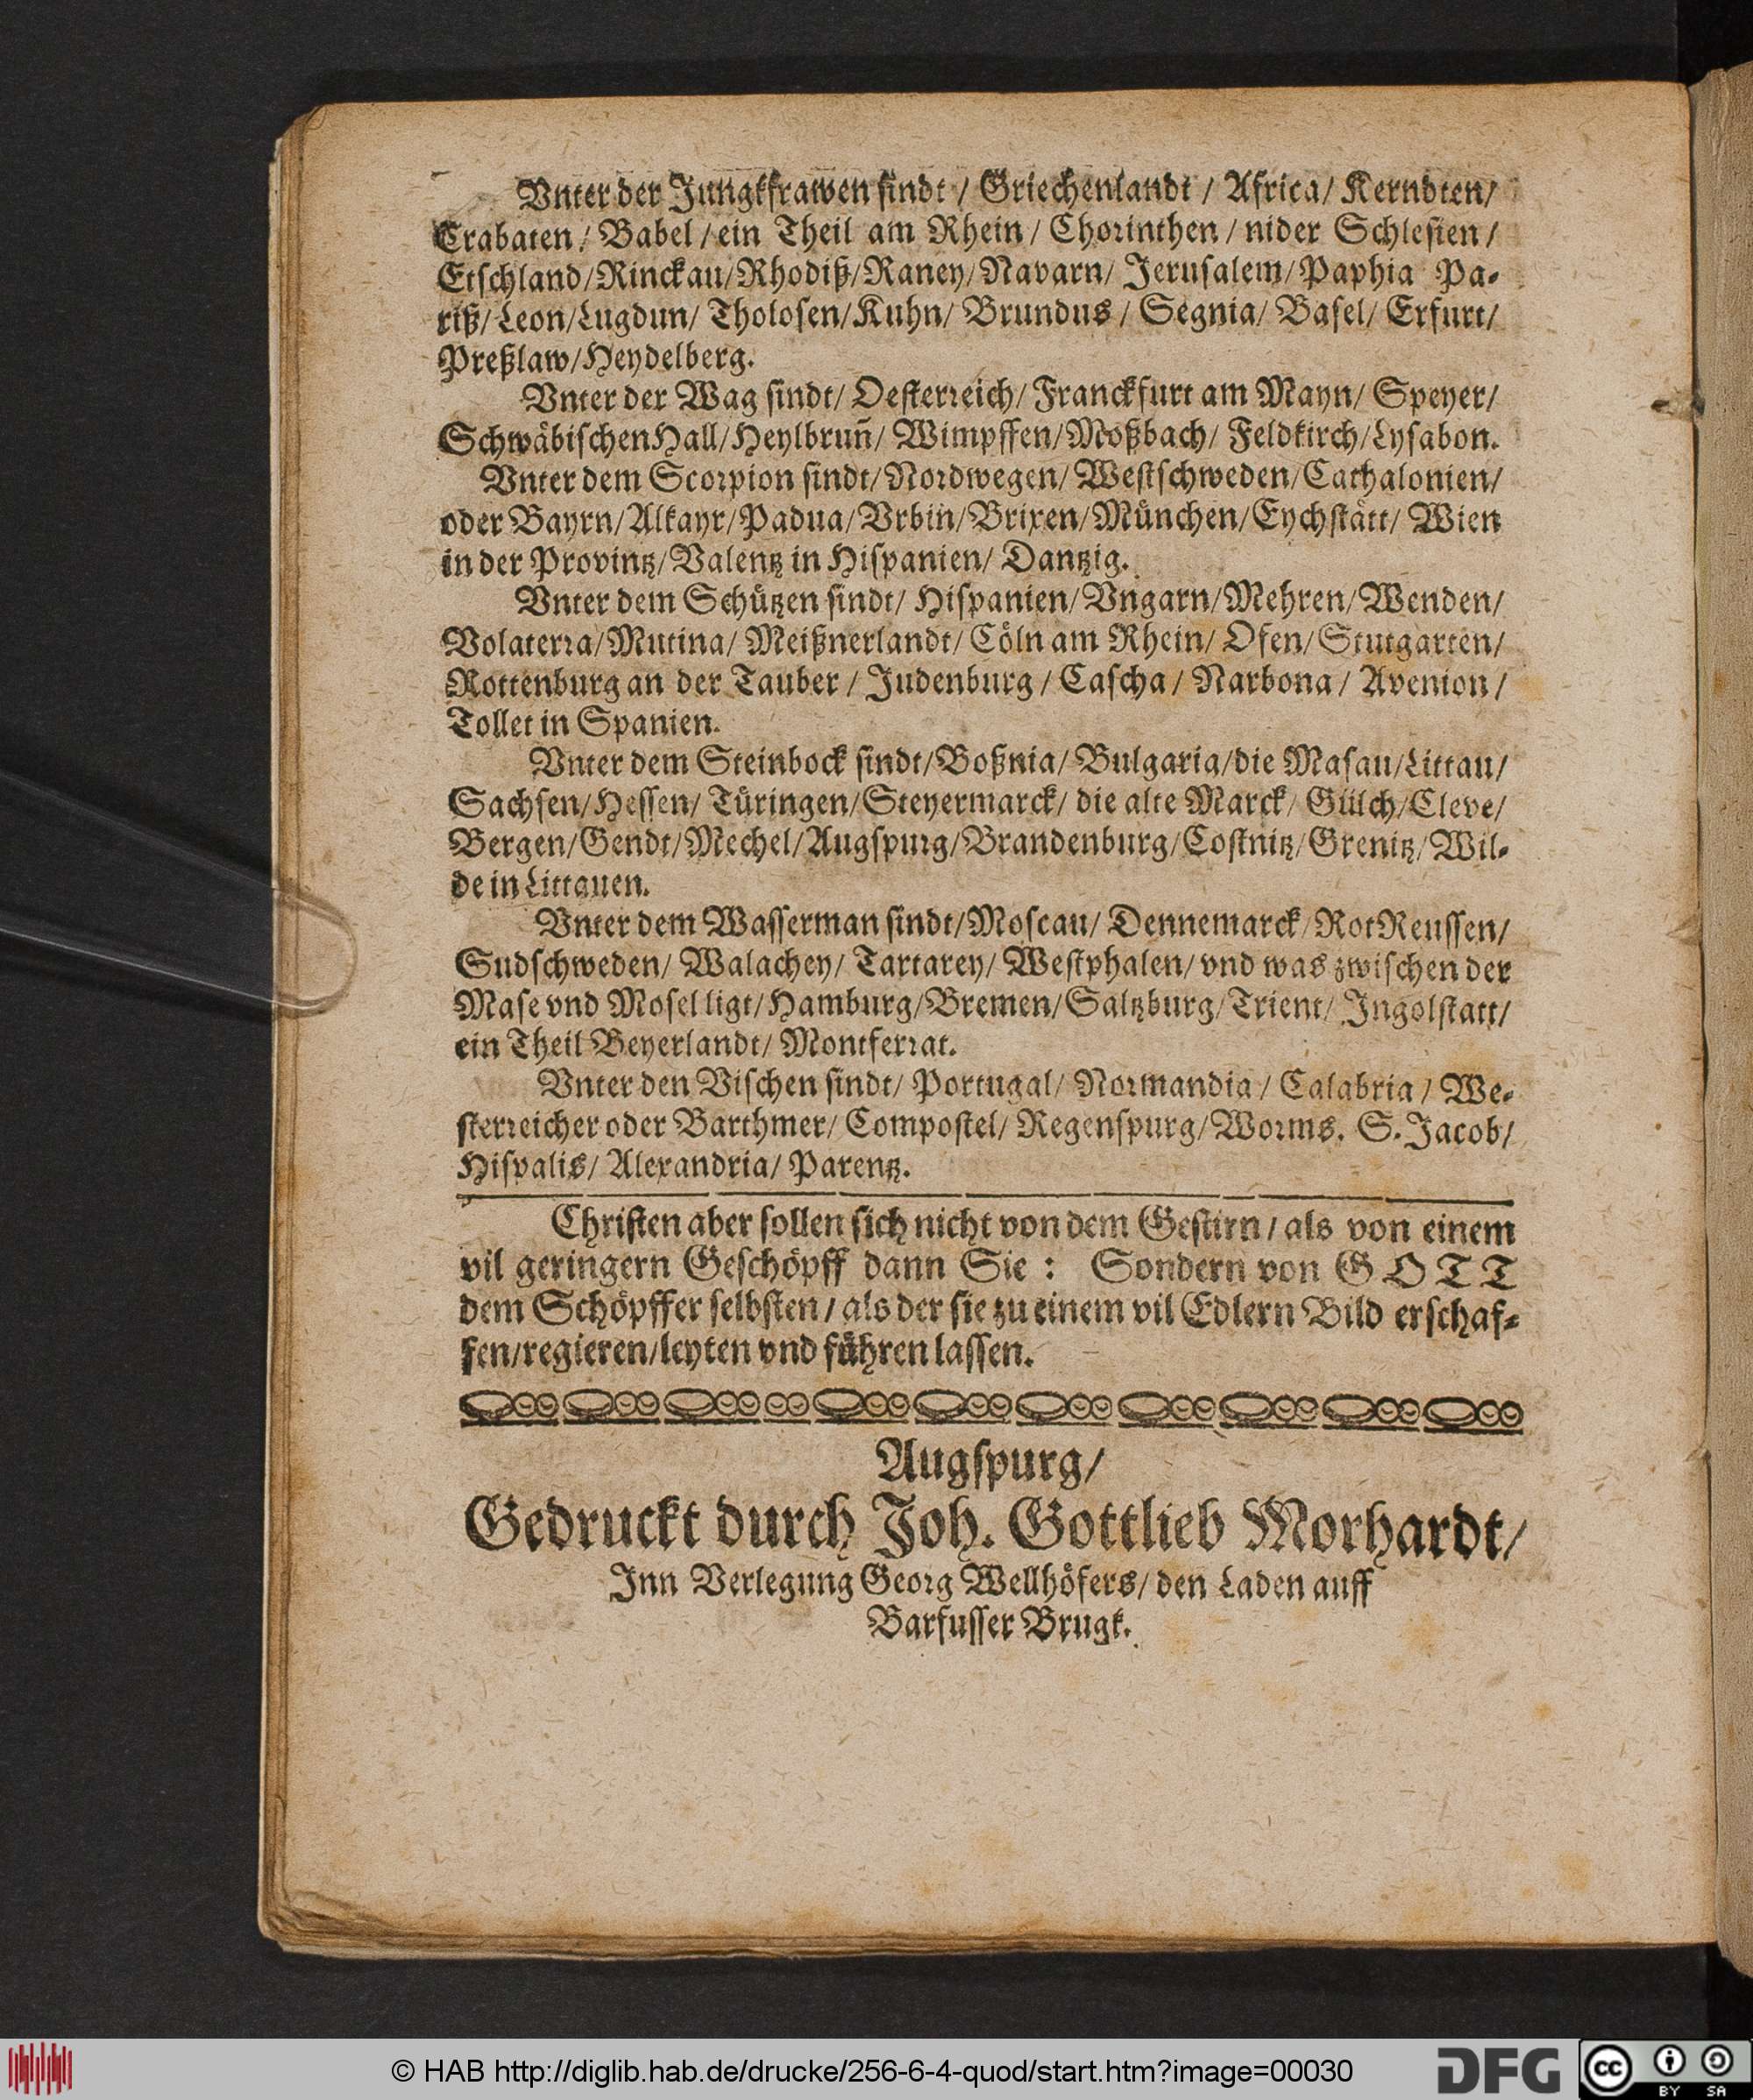 Vnter der Jungkfrawen sindt / Griechenlandt / Africa/ Kerndten/
Crabaten / Babel / ein Theil am Rhein / Chorinthen / nider Schlesien /
Etschland/Rinckau/Rhodiß/Raney/Navarn/ Jerusalem/Paphia Pa-
riß/Leon/Lugdun/ Tholosen/Kuhn/ Brundus / Segnia/ Basel/ Erfurt/
Preßlaw/Heydelberg.
Vnter der Wag sindt/ Oesterreich/ Franckfurt am Mayn/ Speyer/
Schwäbischen Hall/Heylbruñ/ Wimpffen/Moßbach/ Feldkirch/Lysabon.
Vnter dem Scorpion sindt/Nordwegen/ Westschweden/Cathalonien/
oder Bayrn/Alkayr/Padua/Vrbin/Brixen/München/Eychstätt/ Wien
in der Provintz/Valentz in Hispanien/ Dantzig.
Vnter dem Schützen sindt/ Hispanien/Vngarn/Mehren/Wenden/
Volaterra/Mutina/ Meißnerlandt/ Cöln am Rhein/ Ofen/Stutgarten/
Rottenburg an der Tauber / Judenburg / Cascha / Narbona / Avenion /
Tollet in Spanien.
Vnter dem Steinbock sindt/Boßnia/ Bulgaria/die Masau/Littau/
Sachsen/Hessen/ Türingen/Steyermarck/ die alte Marck/ Gülch/Cleve/
Bergen/Gendt/Mechel/Augspurg/Brandenburg/Costnitz/Grenitz/Wil-
de in Littauen.
Vnter dem Wasserman sindt/Moscau/ Dennemarck/RotReussen/
Sudschweden/ Walachey/ Tartarey/ Westphalen/ vnd was zwischen der
Mase vnd Mosel ligt/Hamburg/Bremen/Saltzburg/Trient/ Ingolstatt/
ein Theil Beyerlandt/ Montferrat.
Vnter den Vischen sindt/ Portugal/ Normandia / Calabria / We-
sterreicher oder Barthmer/ Compostel/ Regenspurg/Worms. S. Jacob/
Hispalis/ Alexandria/ Parentz.
Christen aber sollen sich nicht von dem Gestirn / als von einem
vil geringern Geschöpff dann Sie : Sondern von GOTT
dem Schöpffer selbsten / als der sie zu einem vil Edlern Bild erschaf-
fen/regieren/leyten vnd führen lassen.
Augspurg/
Gedruckt durch Joh. Gottlieb Morhardt/
Inn Verlegung Georg Wellhöfers/ den Laden auff
Barfusser Brugk.
© HAB http://diglib.hab.de/drucke/256-6-4-quod/start.htm?image=00030
DFG
cc BY SA